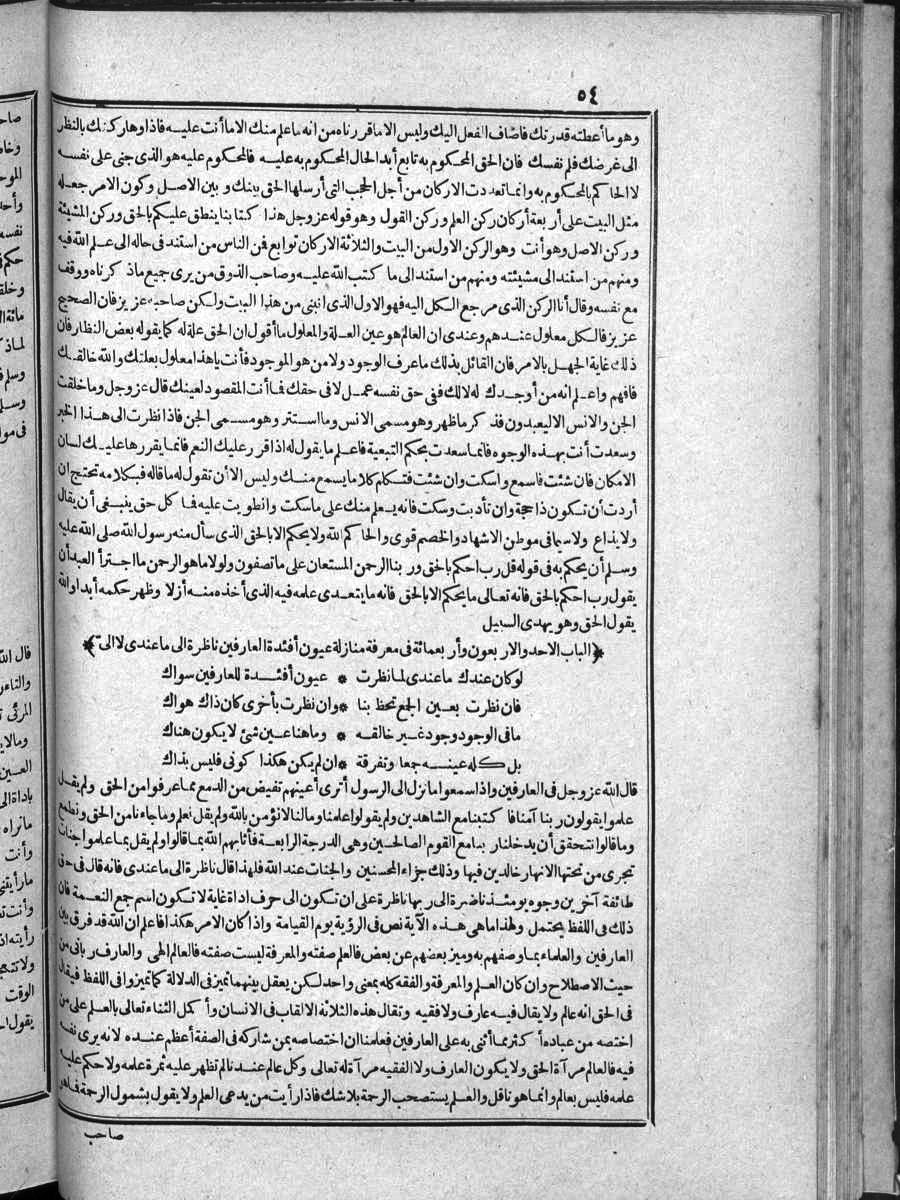 ٥٤
وهو ما أعطته قدرتك فاضاف الفعل اليك وليس الا ما قررناه من انه ما علم منك الا ما أنت عليه فاذا وهاركنك بالنظر
الى غرضك فلم نفسك فان الحق المحكوم به تابع أبدا لحال المحكوم به عليه فالمحكوم عليه هو الذى جنى على نفسه
لا الحاكم بالمحكوم به وانما تعددت الاركان من أجل الحجب التى أرسلها الحق بينك وبين الاصل وكون الامر جعله
مثل البيت على أربعة أركان ركن العلم وركن القول وهو قوله عز وجل هذا كتابنا ينطق عليكم بالحق وركن المشيئة
وركن الاصل وهو أنت وهو الركن الاول من البيت والثلاثة الاركان توابع فمن الناس من استند فى حاله الى علم الله فيه
ومنهم من استند الى مشيئته ومنهم من استند الى ما كتب الله عليه وصاحب الذوق من يرى جميع ماذكرناه ووقف
مع نفسه وقال أنا الركن الذى مرجع الكل اليه فهو الاول الذى انبنى من هذا البيت ولكن صاحبه عزيز فان الصحيح
عزيز فالكل معلول عندهم وعندى ان العالم هو عين العلة والمعلول ما أقول ان الحق علة له كما يقوله بعض النظار فان
ذلك غاية الجهل بالامر فان القائل بذلك ما عرف الوجود ولا من هو الموجود فأنت يا هذا معلول بعلتك والله خالقك
فافهم واعلم انه من أوجدك له لا لك ففى حق نفسه عمل لا فى حقك فما أنت المقصود لعينك قال عز وجل وما خلقت
الجن والانس الا ليعبدون فذكر ما ظهر وهو مسمى الانس وما استتر وهو مسمى الجن فاذا نظرت الى هذا الخبر
وسعدت أنت بهذه الوجوه فانما سعدت بحكم التبعية فاعلم ما يقوله لك اذا قرر عليك النعم فانما يقررها عليك لسان
الامكان فان شئت فاسمع واسكت وان شئت فتكلم كلاما يسمع منك وليس الا أن تقول له ما قاله فبكلامه تحتج ان
أردت أن تكون ذا حجة وان تأدبت وسكت فانه يعلم منك على ما سكت وانطويت عليه فما كل حق ينبغى أن يقال
ولا يذاع ولا سيما فى موطن الاشهاد والخصم قوى والحاكم الله ولا يحكم الا بالحق الذى سأل منه رسول الله صلى الله عليه
وسلم أن يحكم به فى قوله قل رب احكم بالحق وربنا الرحمن المستعان على ما تصفون ولولا ما هو الرحمن ما اجترأ العبد أن
يقول رب احكم بالحق فانه تعالى ما يحكم الا بالحق فانه ما يتعدى علمه فيه الذى أخذه منه أزلا وظهر حكمه أبدا والله
يقول الحق وهو يهدى السبيل
﴿الباب الاحد والاربعون وأربعمائة فى معرفة منازلة عيون أفئدة العارفين ناظرة الى ما عندى لا الى﴾
لو كان عندك ما عندى لما نظرت * عيون أفئدة للعارفين سواك
فان نظرت بعين الجمع تحظ بنا * وان نظرت بأخرى كان ذاك هواك
ما فى الوجود وجود غير خالقه * وما هنا عين شئ لا يكون هناك
بل كله عينه جمعا وتفرقة * ان لم يكن هكذا كونى فليس بذاك
قال الله عز وجل فى العارفين واذا سمعوا ما نزل الى الرسول أترى أعينهم تفيض من الدمع مما عرفوا من الحق ولم يقل
علموا يقولون ربنا آمنا فاكتبنا مع الشاهدين ولم يقولوا علمنا وما لنا لا نؤمن بالله ولم يقل نعلم وما جاءنا من الحق ونطمع
وما قالوا نتحقق أن يدخلنا ربنا مع القوم الصالحين وهى الدرجة الرابعة فأثابهم الله بما قالوا ولم يقل بما علموا جنات
تجرى من تحتها الانهار خالدين فيها وذلك جزاء المحسنين والجنات عند الله فلهذا قال ناظرة الى ما عندى فانه قال فى حق
طائفة آخرين وجوه يومئذ ناضرة الى ربها ناظرة على ان تكون الى حرف اداة غاية لا تكون اسم جمع النعمة فان
ذلك فى اللفظ يحتمل ولهذا ما هى هذه الآية نص فى الرؤية يوم القيامة واذا كان الامر هكذا فاعلم ان الله قد فرق بين
العارفين والعلماء بما وصفهم به وميز بعضهم عن بعض فالعلم صفته والمعرفة ليست صفته فالعالم الهى والعارف ربانى من
حيث الاصطلاح وان كان العلم والمعرفة والفقه كله بمعنى واحد لكن يعقل بينهما تميز فى الدلالة كما تميزوا فى اللفظ فيقال
فى الحق انه عالم ولا يقال فيه عارف ولا فقيه وتقال هذه الثلاثة الالقاب فى الانسان وأكمل الثناء تعالى بالعلم على من
اختصه من عباده أكثر مما أثنى به على العارفين فعلمنا ان اختصاصه بمن شاركه فى الصفة أعظم عنده لانه يرى نفسه
فيه فالعالم مرآة الحق ولا يكون العارف ولا الفقيه مرآة له تعالى وكل عالم عندنا لم تظهر عليه ثمرة علمه ولا حكم عليه
علمه فليس بعالم وانما هو ناقل والعلم يستصحب الرحمة بلا شك فاذا رأيت من يدعى العلم ولا يقول بشمول الرحمة فما هو
صاحب